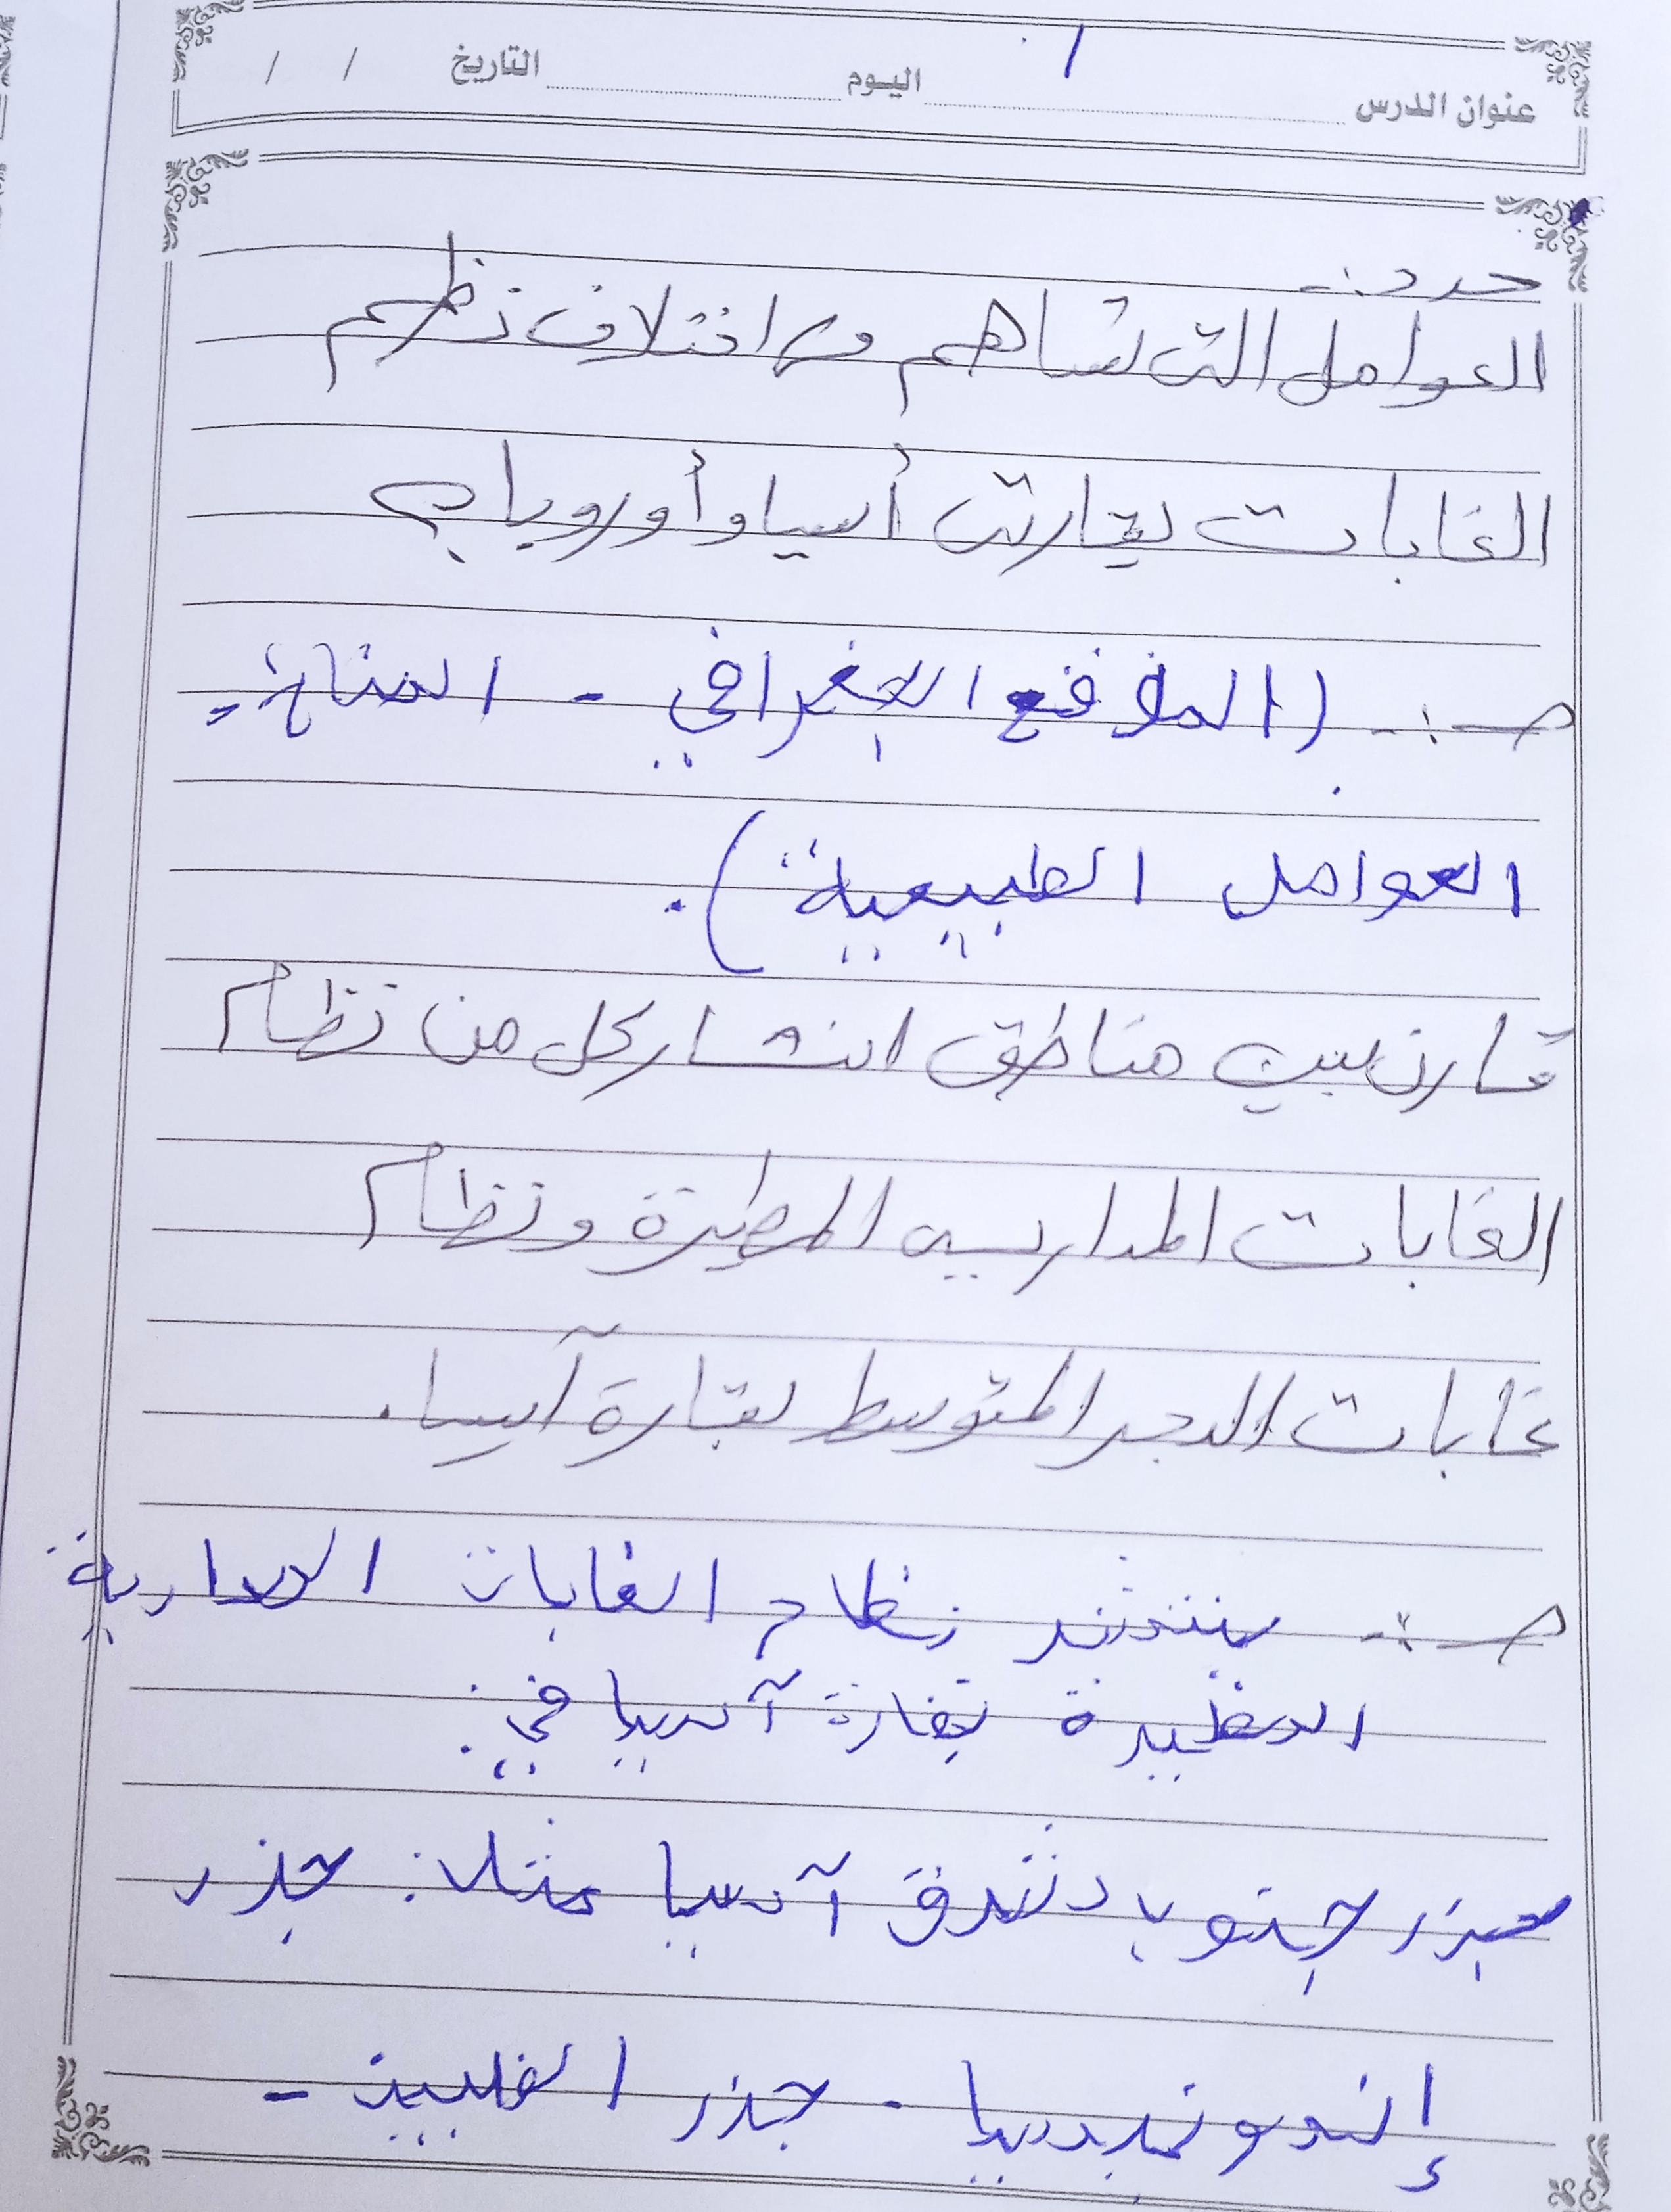 عنوان الدرس اليوم التاريخ / /
حدد :-
العوامل التى تساهم فى اختلاف نظم
الغابات بقارتى أسيا وأوروبا ؟
حـ :- (الموقع الجغرافي - المناخ -
العوامل الطبيعية).
قارن بين مناطق انتشار كل من نظام
الغابات المداريه المطيرة ونظام
غابات البحر المتوسط بقارة آسيا.
حـ :- ينتشر نظام الغابات المدارية
المطيرة بقارة آسيا في:
جزر جنوب شرق آسيا مثل: جزر
إندونيسيا - جزر الفلبين -